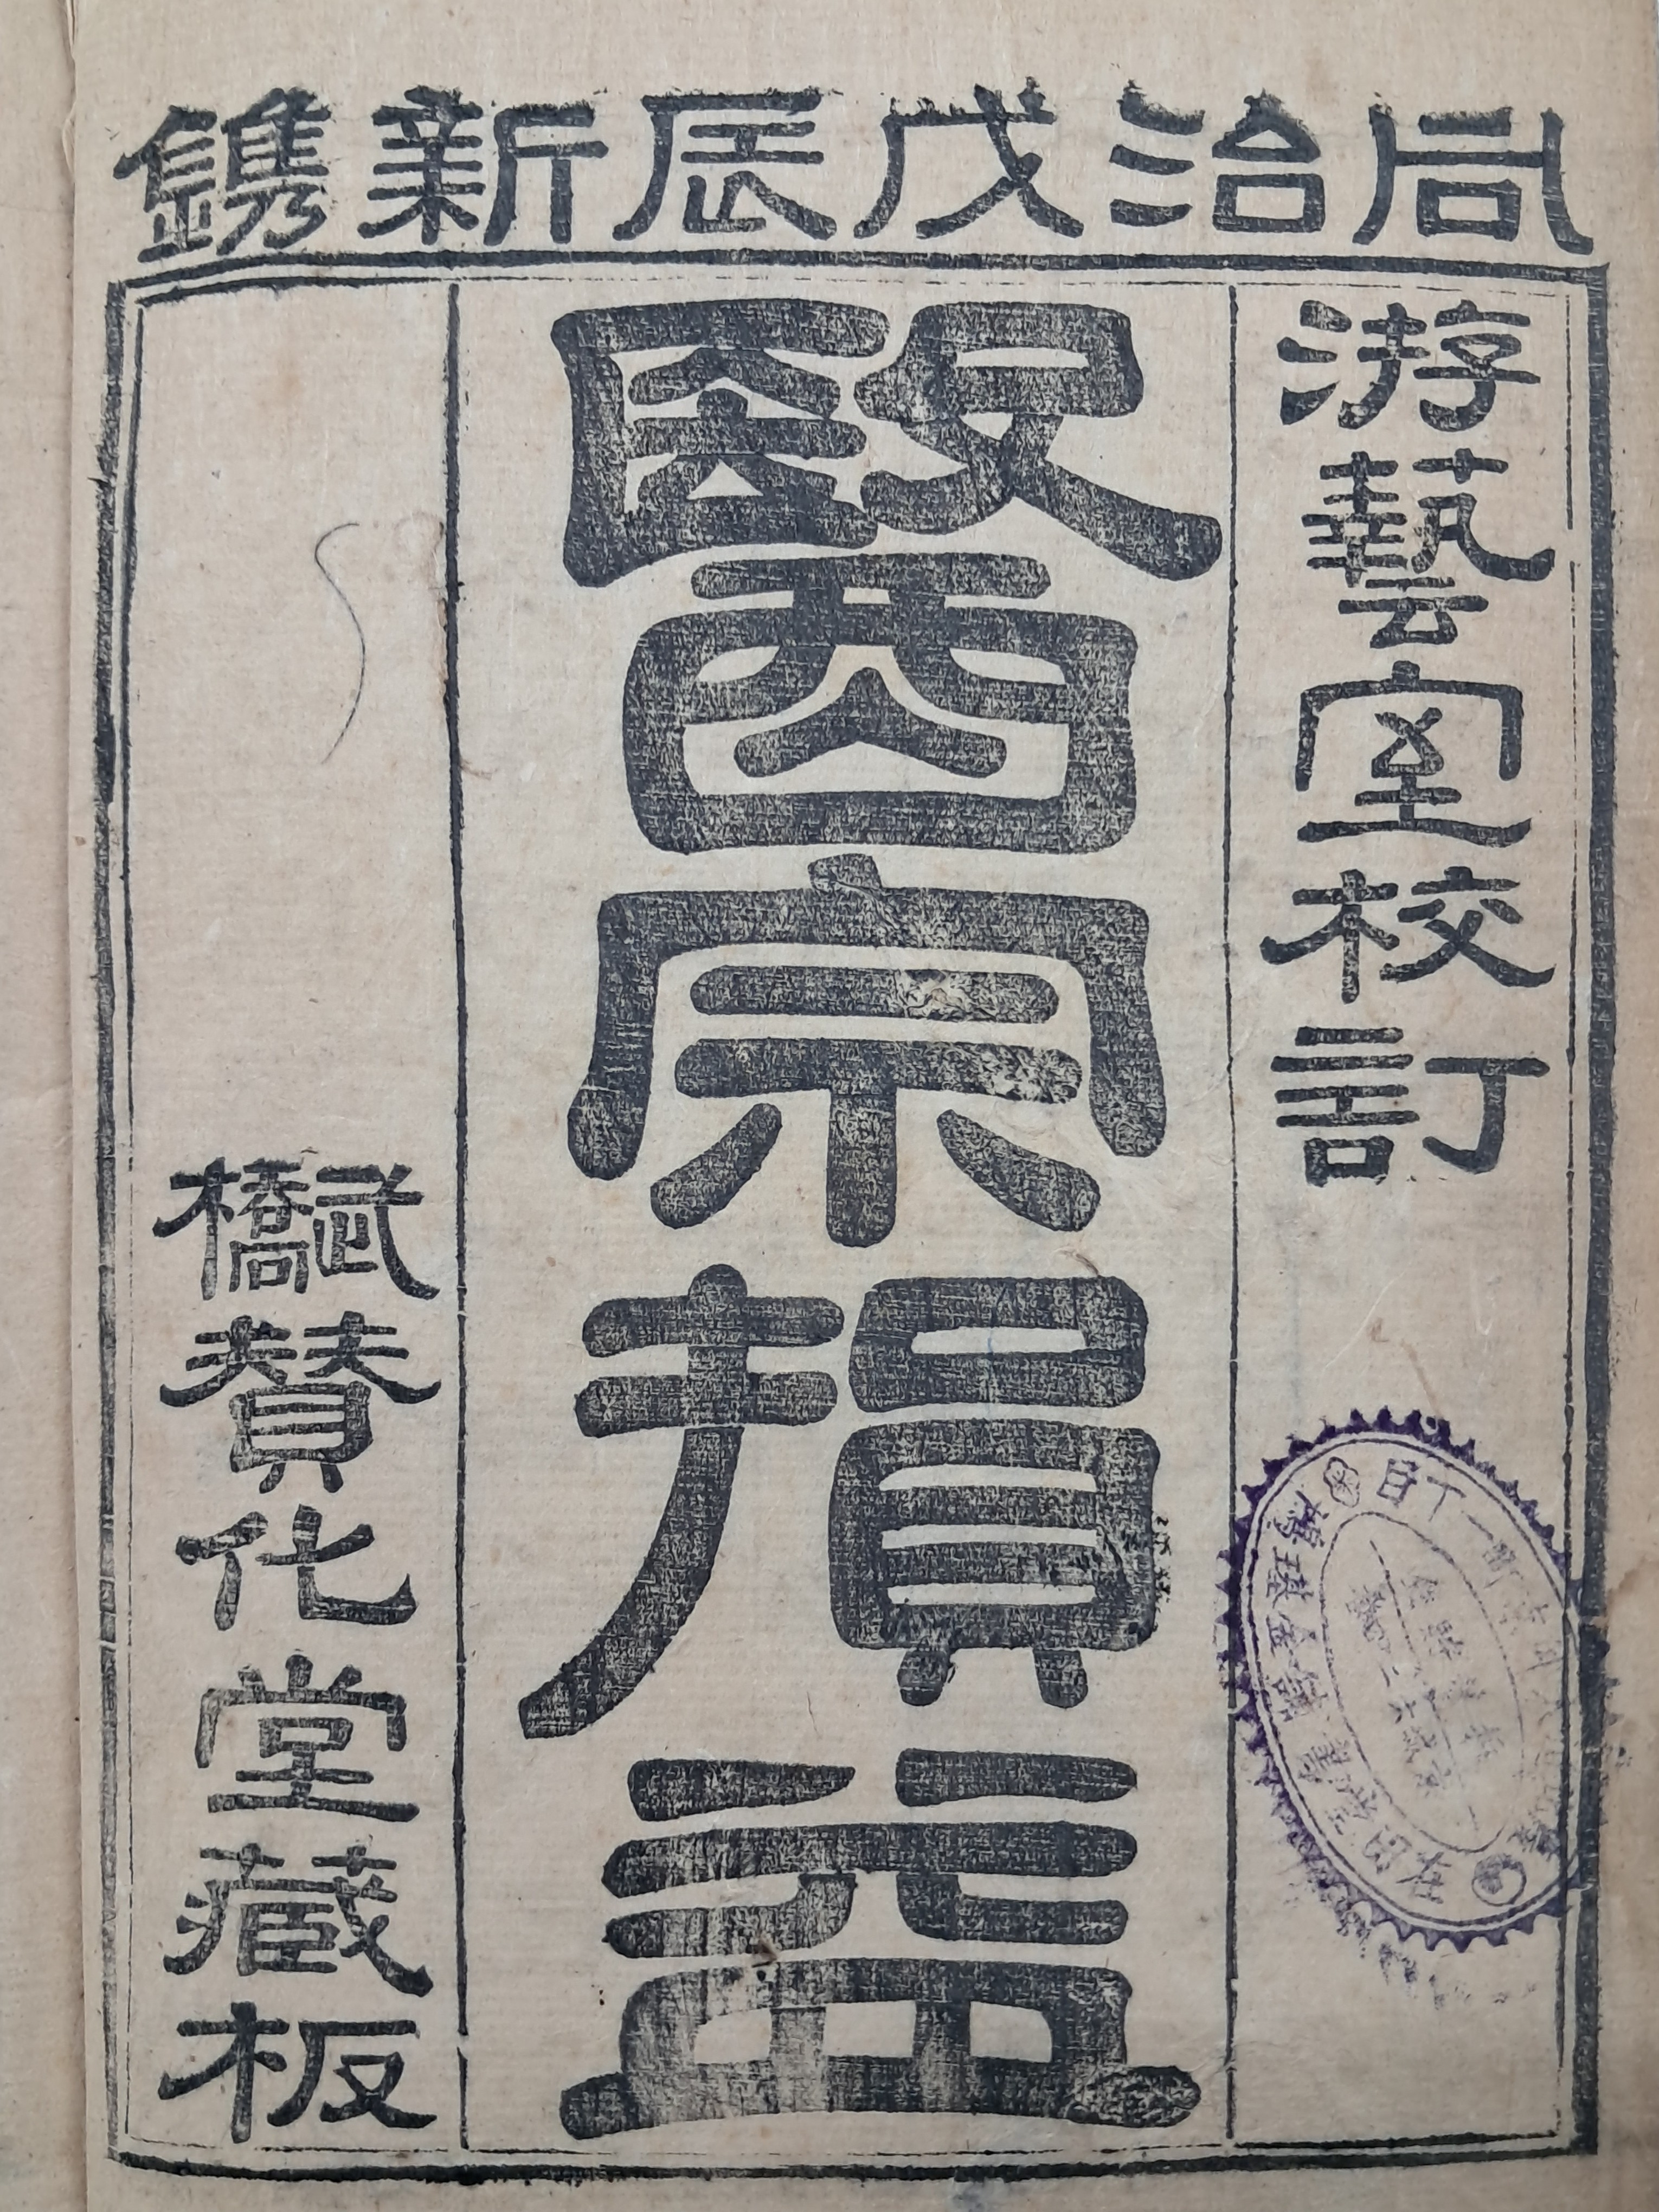 同治戊辰新鎸
游藝室校訂
醫宗損益
武橋賛化堂藏板